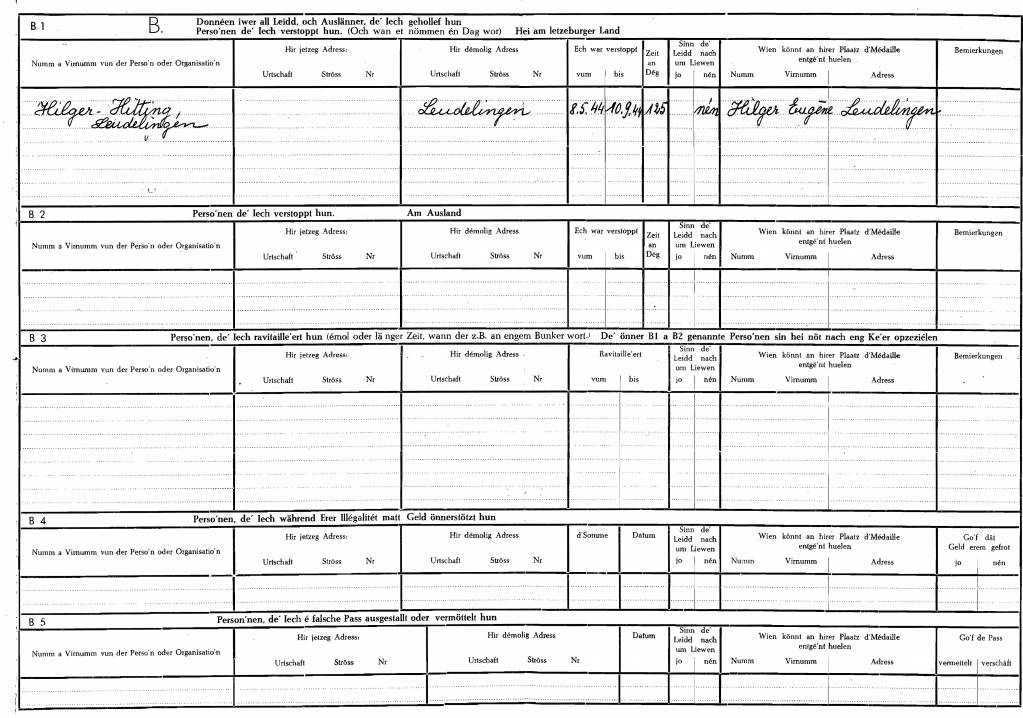 B 1 B. Donnéen iwer all Leidd, och Auslänner, de' Iech gehollef hun
Perso'nen de' Iech verstoppt hun. (Och wan et nömmen én Dag wor) Hei am letzeburger Land
Numm a Virnumm vun der Perso'n oder Organisatio'n Hir jetzeg Adress: Hir démolig Adress Ech war verstoppt Zeit an Dég Sinn de' Leidd nach um Liewen Wien könnt an hirer Plaatz d'Médaille entgé'nt huelen Bemierkungen
Urtschaft Ströss Nr Urtschaft Ströss Nr vum bis jo nén Numm Virnumm Adress
Hilger-Hitting, Leudelingen 8.5.44 10.9.44 125 nén Hilger Eugène Leudelingen
Leudelingen
B 2 Perso'nen de' Iech verstoppt hun. Am Ausland
Numm a Virnumm vun der Perso'n oder Organisatio'n Hir jetzeg Adress: Hir démolig Adress Ech war verstoppt Zeit an Dég Sinn de' Leidd nach um Liewen Wien könnt an hirer Plaatz d'Médaille entgé'nt huelen Bemierkungen
Urtschaft Ströss Nr Urtschaft Ströss Nr vum bis jo nén Numm Virnumm Adress
B 3 Perso'nen, de' Iech ravitaille'ert hun (émol oder länger Zeit, wann der z.B. an engem Bunker wort.) De' önner B1 a B2 genannte Perso'nen sin hei nöt nach eng Ke'er opzeziélen
Numm a Virnumm vun der Perso'n oder Organisatio'n Hir jetzeg Adress: Hir démolig Adress Ravitaille'ert Sinn de' Leidd nach um Liewen Wien könnt an hirer Plaatz d'Médaille entgé'nt huelen Bemierkungen
Urtschaft Ströss Nr Urtschaft Ströss Nr vum bis jo nén Numm Virnumm Adress
B 4 Perso'nen, de' Iech während Erer Illégalitét matt Geld önnerstötzt hun
Numm a Virnumm vun der Perso'n oder Organisatio'n Hir jetzeg Adress: Hir démolig Adress d'Somme Datum Sinn de' Leidd nach um Liewen Wien könnt an hirer Plaatz d'Médaille entgé'nt huelen Go'f dât Geld erem gefrot
Urtschaft Ströss Nr Urtschaft Ströss Nr jo nén Numm Virnumm Adress jo nén
B 5 Person'nen, de' Iech é falsche Pass ausgestallt oder vermöttelt hun
Numm a Virnumm vun der Perso'n oder Organisatio'n Hir jetzeg Adress: Hir démolig Adress Datum Sinn de' Leidd nach um Liewen Wien könnt an hirer Plaatz d'Médaille entgé'nt huelen Go'f de Pass
Urtschaft Ströss Nr Urtschaft Ströss Nr jo nén Numm Virnumm Adress vermettelt verschâft